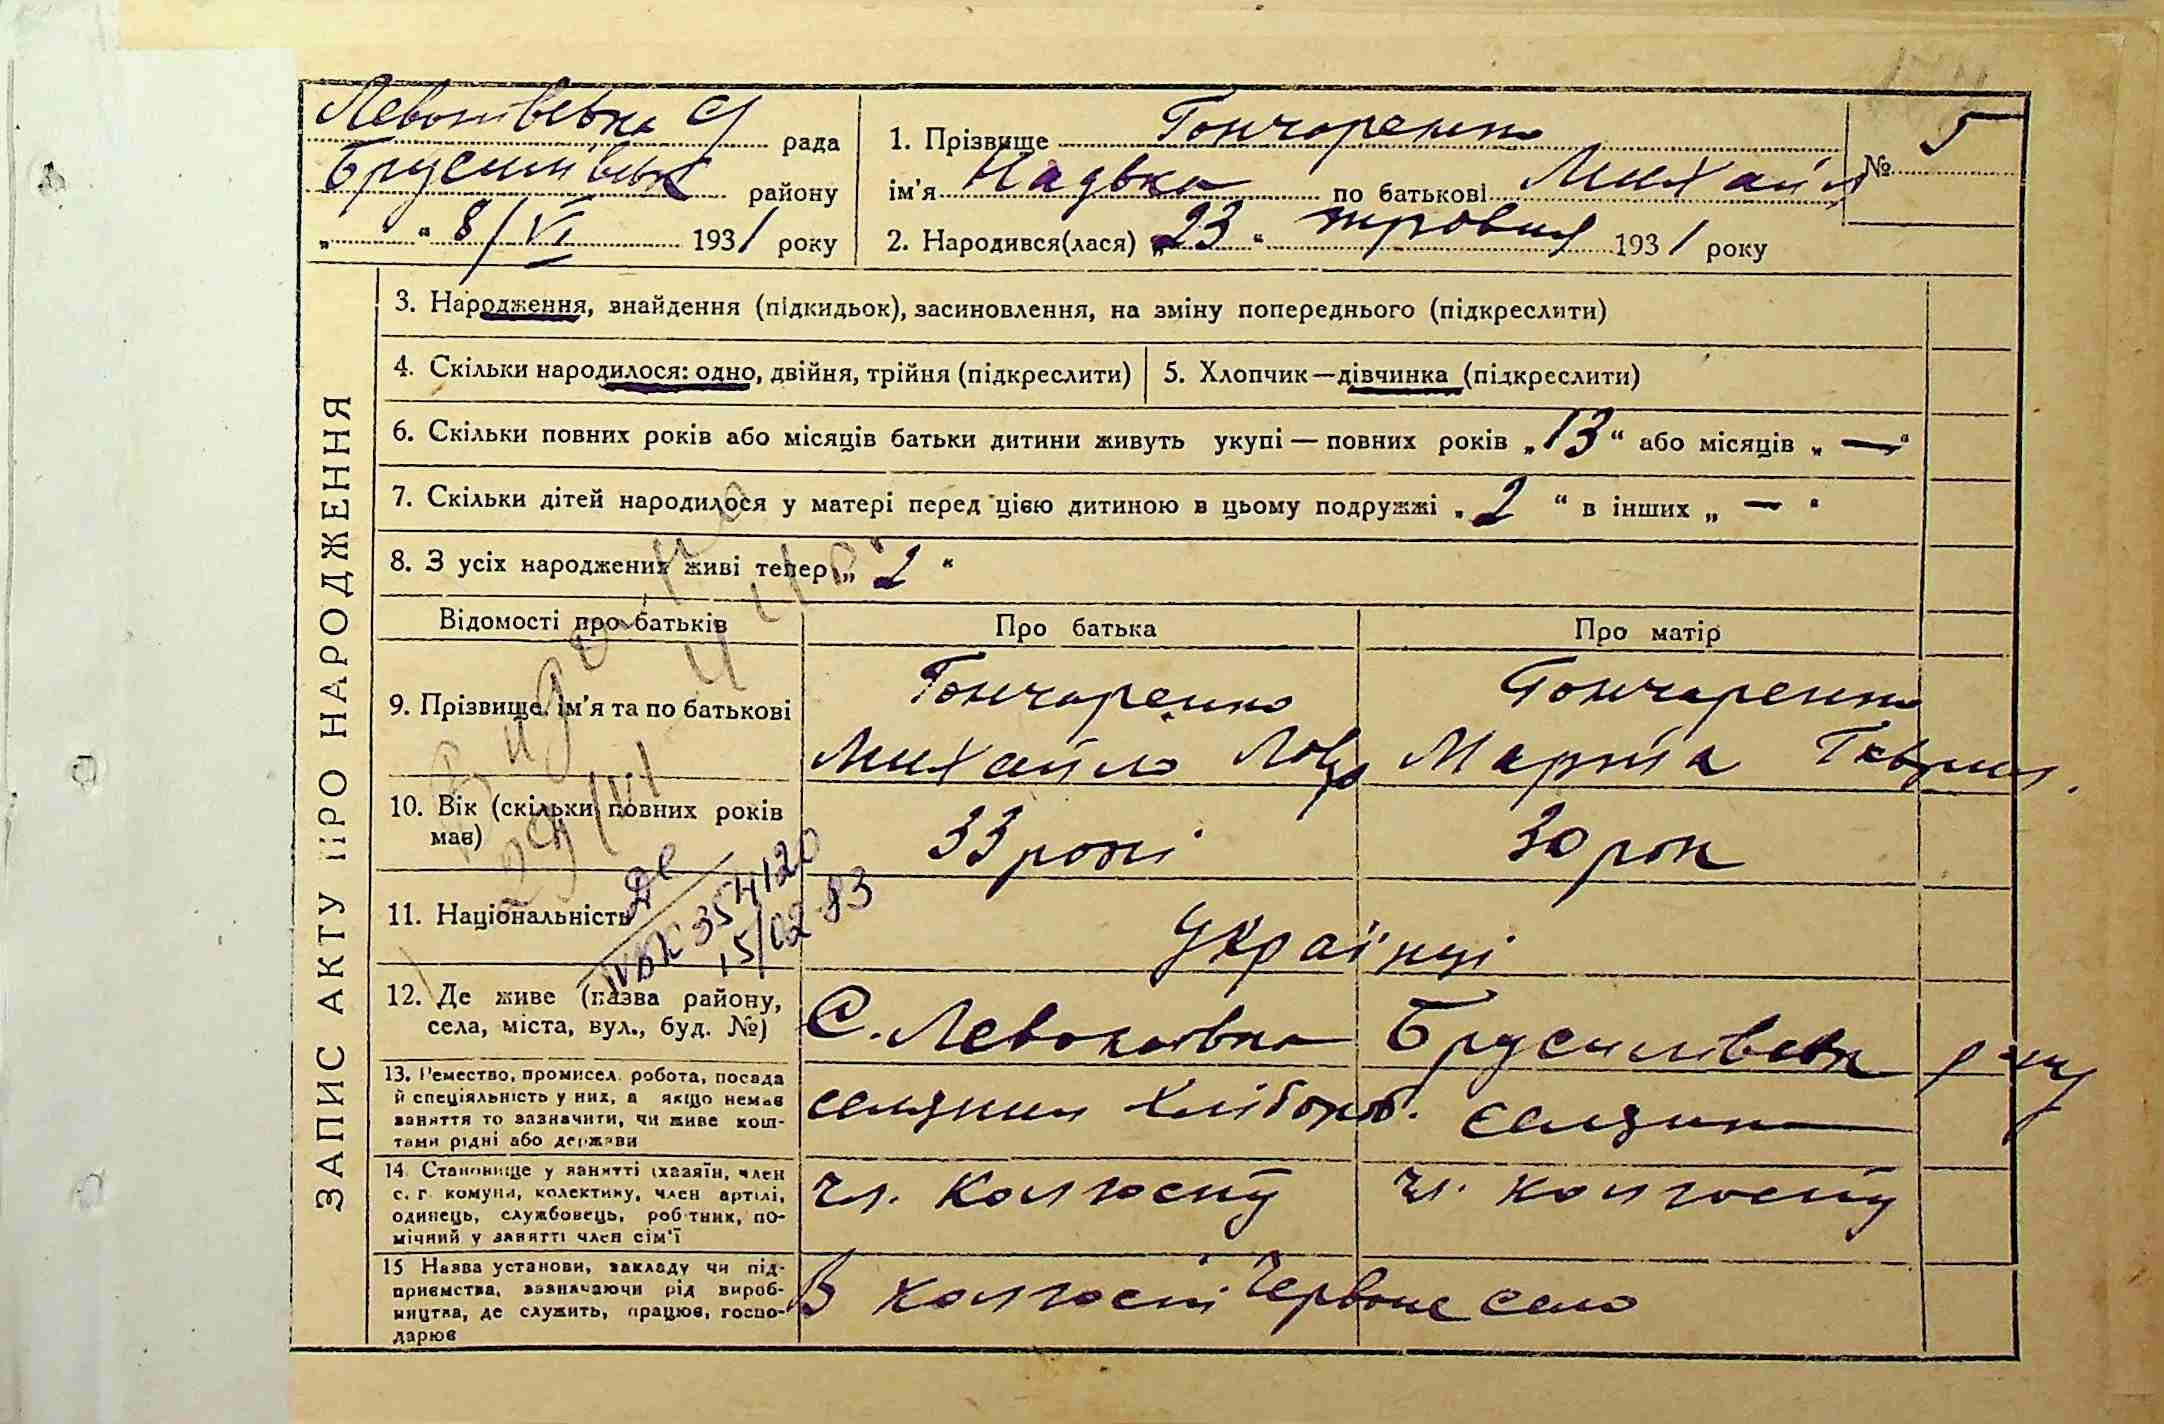 Левонівська с/ рада
Брусилівськ району
„ “ 8/VI 1931 року
1. Прізвище Гончаренко
ім'я Надька по батькові Михайл
2. Народився(лася) „23“ травня 1931 року
№ 5
ЗАПИС АКТУ ПРО НАРОДЖЕННЯ
3. Народження, знайдення (підкидьок), засиновлення, на зміну попереднього (підкреслити)
4. Скільки народилося: одно, двійня, трійня (підкреслити)
5. Хлопчик—дівчинка (підкреслити)
6. Скільки повних років або місяців батьки дитини живуть укупі — повних років „13“ або місяців „—“
7. Скільки дітей народилося у матері перед цією дитиною в цьому подружжі „2“ в інших „—“
8. З усіх народжених живі тепер „2“
Відомості про батьків
Про батька
Про матір
9. Прізвище, ім'я та по батькові
Гончаренко
Михайло
Гончаренко
Марина Гаврил.
10. Вік (скільки повних років
має)
33 рокі
30 рок
11. Національність
Українці
12. Де живе (назва району,
села, міста, вул., буд. №)
С. Левонівка Брусилівськ р-ну
13. Ремество, промисел, робота, посада
й спеціяльність у них, а якщо немає
заняття то зазначити, чи живе кош-
тами рідні або держави
селянин хлібороб.
селянка
14. Становище у занятті (хазяїн, член
с. г. комуни, колективу, член артілі,
одинець, службовець, робітник, по-
мічний у занятті член сім'ї
чл. колгоспу
чл. колгоспу
15 Назва установи, закладу чи під-
приємства, зазначаючи рід вироб-
ництва, де служить, працює, госпо-
дарює
В колгоспі Червоне село
Видано
29/VI
ДС
ІV-БК 354120
15/02-83